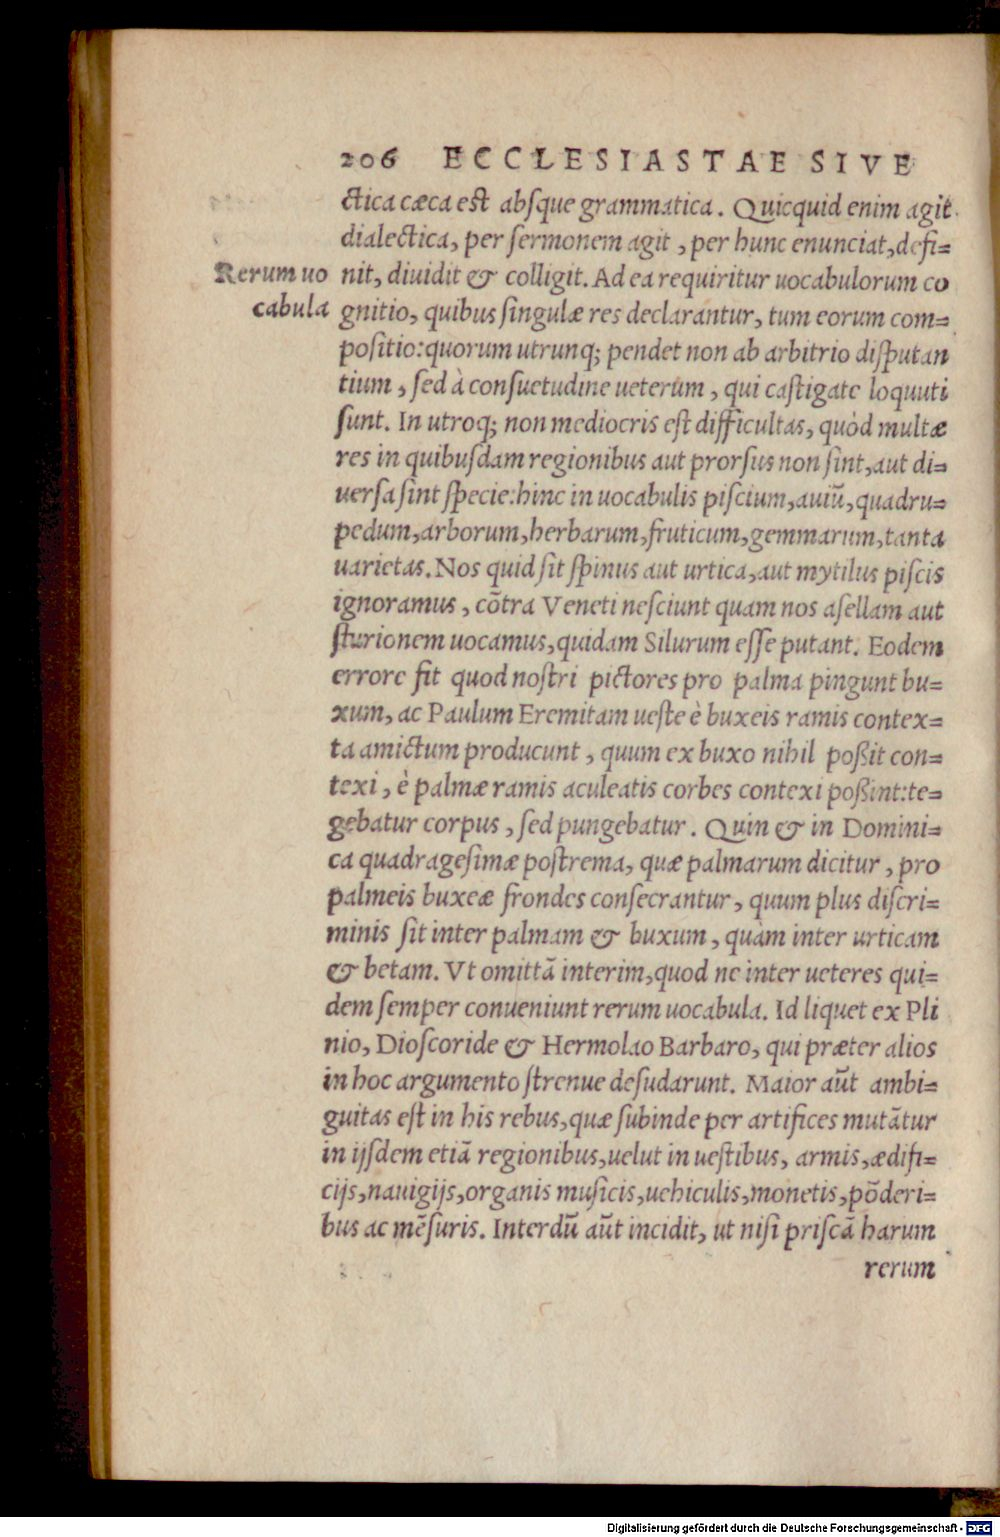 206 ECCLESIASTAE SIVE
ctica cæca est absque grammatica. Quicquid enim agit
dialectica, per sermonem agit, per hunc enunciat, defi=
Rerum uo
nit, diuidit & colligit. Ad ea requiritur uocabulorum co
cabula
gnitio, quibus singulæ res declarantur, tum eorum com=
positio: quorum utrunq; pendet non ab arbitrio disputan
tium, sed à consuetudine ueterum, qui castigate loquuti
sunt. In utroq; non mediocris est difficultas, quòd multæ
res in quibusdam regionibus aut prorsus non sint, aut di=
uersa sint specie: hinc in uocabulis piscium, auiũ, quadru=
pedum, arborum, herbarum, fruticum, gemmarum, tanta
uarietas. Nos quid sit spinus aut urtica, aut mytilus piscis
ignoramus, cõtra Veneti nesciunt quam nos asellam aut
sturionem uocamus, quidam Silurum esse putant. Eodem
errore fit quod nostri pictores pro palma pingunt bu=
xum, ac Paulum Eremitam ueste è buxeis ramis contex=
ta amictum producunt, quum ex buxo nihil poßit con=
texi, è palmæ ramis aculeatis corbes contexi poßint: te=
gebatur corpus, sed pungebatur. Quin & in Domini=
ca quadragesimæ postrema, quæ palmarum dicitur, pro
palmeis buxeæ frondes consecrantur, quum plus discri=
minis sit inter palmam & buxum, quàm inter urticam
& betam. Vt omittã interim, quod ne inter ueteres qui=
dem semper conueniunt rerum uocabula. Id liquet ex Pli
nio, Dioscoride & Hermolao Barbaro, qui præter alios
in hoc argumento strenue desudarunt. Maior aũt ambi=
guitas est in his rebus, quæ subinde per artifices mutãtur
in ijsdem etiã regionibus, uelut in uestibus, armis, ædifi=
cijs, nauigijs, organis musicis, uehiculis, monetis, põderi=
bus ac mẽsuris. Interdũ aũt incidit, ut nisi priscã harum
rerum
Digitalisierung gefördert durch die Deutsche Forschungsgemeinschaft - DFG